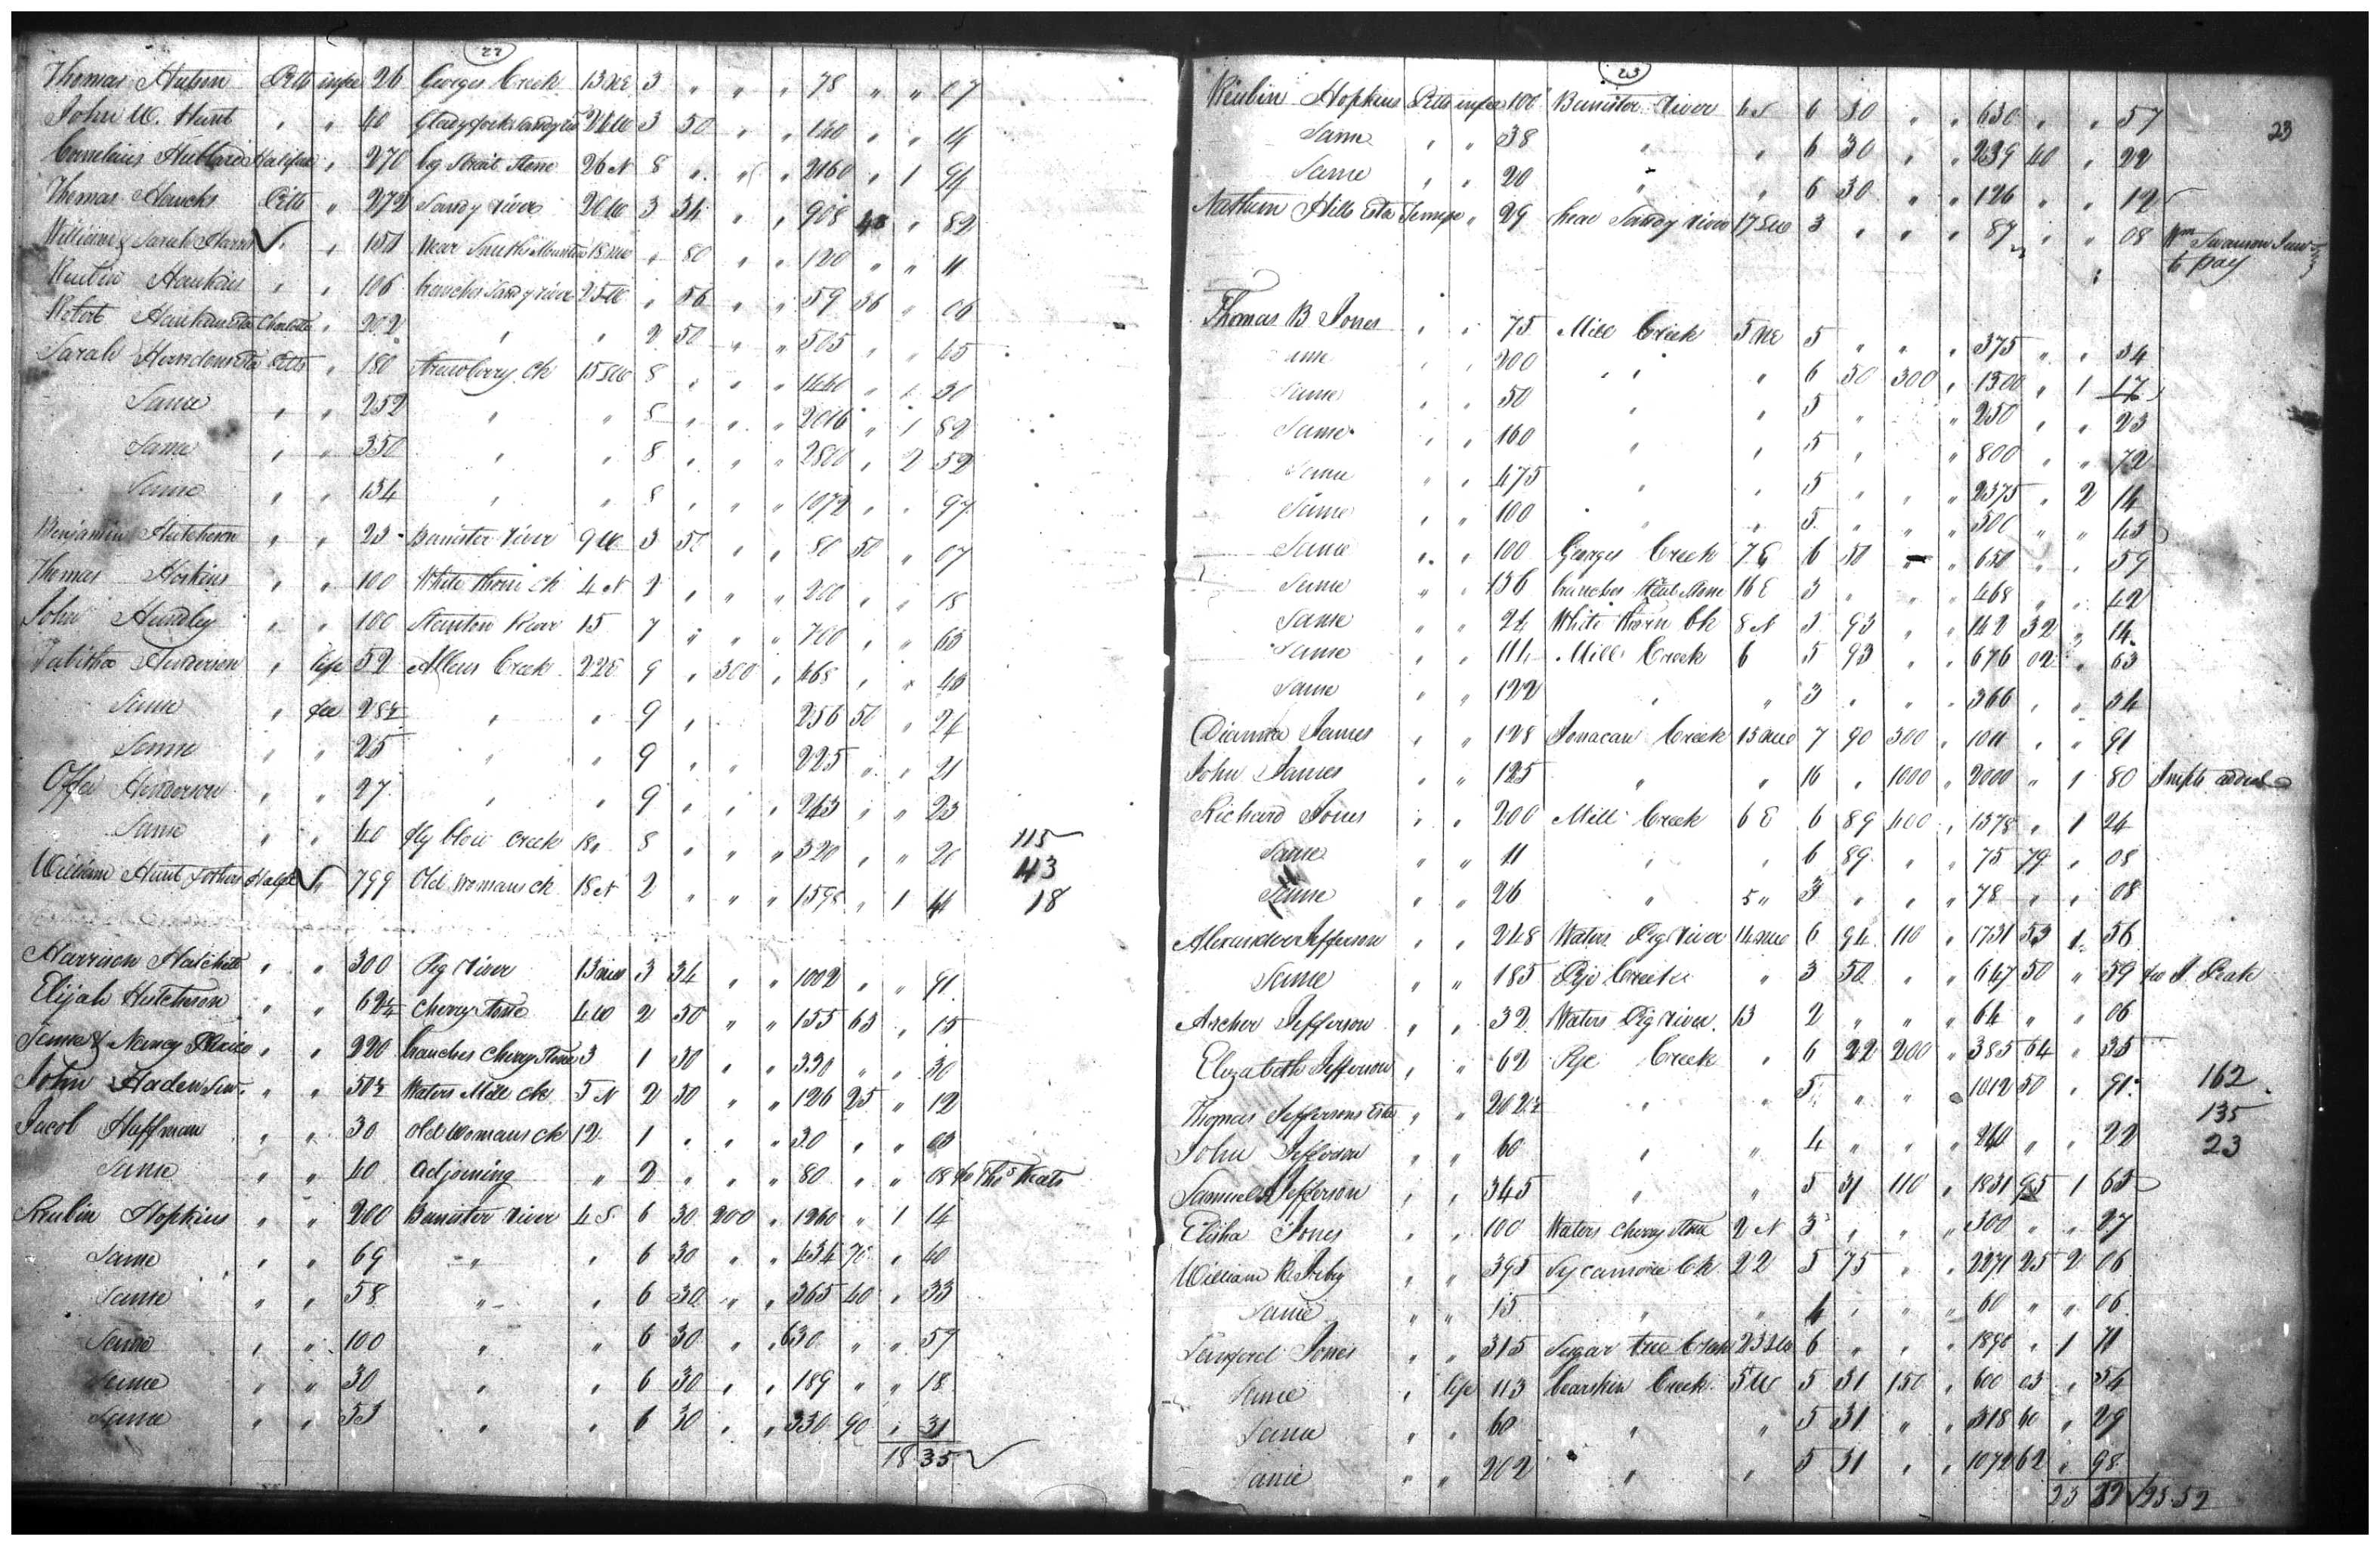 22
Thomas Hutson Pitts in fee 26 Georges Creek 13 NE 3 " " " 78 " " 07
John W. Hunt " " 40 24 W 3 50 " " 140 " " 14
Cornelius Hubbard Halifax " 270 big Strait Stone 26 N 8 " " " 2160 " 1 94
Thomas Pitts " 272 Sandy river 20 W 3 34 " " 908 48 " 82
William & Sarah Harris " " 150 Near Smiths Mountain 18 NW " 80 " " 120 " " 11
Reubin Hankins " " 106 branches Sandy river 25 W " 56 " " 59 36 " 06
Robert Charlotte " 202 " " 2 50 " " 505 " " 45
Sarah Pitts " 180 Strawberry Ck 15 SW 8 " " " 1440 " 1 30
Same " " 252 " " 8 " " " 2016 " 1 82
Same " " 350 " " 8 " " " 2800 " 2 52
Same " " 134 " " 8 " " " 1072 " " 97
Benjamin Hutcheson " " 23 Banister river 9 W 3 50 " " 80 50 " 07
Thomas Hoskins " " 100 White thorn ck 4 N 2 " " " 200 " " 18
John Hundley " " 100 Stanton River 15 7 " " " 700 " " 63
Tabitha Henderson " life 52 Allens Creek 22 E 9 " 300 " 468 " " 43
Same " fee 28½ " " 9 " 256 50 " 24
Same " " 25 " " 9 " " 225 " " 21
Offa Henderson " " 27 " " 9 " " " 243 " " 23
Same " " 40 fly blow Creek 18 " 8 " " " 320 " " 26
115
43
18
William Hunt & others Halifx " 799 Old Womans ck 18 N 2 " " " 1598 " 1 44
Harrison Hatchett " " 300 Pig River 13 NW 3 34 " " 1002 " " 91
Elijah Hutcheson " " 62¼ Cherry Stone 4 W 2 50 " " 155 63 " 15
& Nancy " " 220 branches Cherry Stone 3 1 50 " " 330 " " 30
John Haden Sen. " " 50½ Waters Mill ck 5 N 2 50 " " 126 25 " 12
Jacob Huffman " " 30 Old Womans ck 12 1 " " " 30 " " 03
Same " " 40 Adjoining " 2 " " " 80 " " 08 fro Thos Keats
Reubin Hopkins " " 200 Banister River 4 S 6 30 200 " 1260 " 1 14
Same " " 69 " " 6 30 " " 434 70 " 40
Same " " 58 " " 6 30 " " 365 40 " 33
Same " " 100 " " 6 30 " " 630 " " 57
Same " " 30 " " 6 30 " " 189 " " 18
Same " " 53 " " 6 30 " " 330 90 " 31
18 35
23
23
Reubin Hopkins Pitts in fee 100 Banister River 6 S 6 30 " " 630 " " 57
Same " " 38 " " 6 30 " " 239 40 " 22
Same " " 20 " " 6 30 " " 126 " " 12
Nathan Hills Esta " 29 head Sandy river 17 SW 3 " " " 87 " " 08 Wm Swanson Senr to pay
Thomas B Jones " " 75 Mill Creek 5 NE 5 " " " 375 " " 34
Same " " 200 " " 6 50 300 " 1300 " 1 17
Same " " 50 " " 5 " " 250 " " 23
Same " " 160 " " 5 " " 800 " " 72
Same " " 475 " " 5 " " " 2375 " 2 14
Same " " 100 " " 5 " " " 500 " " 45
Same " " 100 Georges Creek 7 E 6 50 " " 650 " " 59
Same " " 156 branches Strait Stone 16 E 3 " " " 468 " " 42
Same " " 24 White thorn Ck 8 N 5 93 " " 142 32 " 14
Same " " 114 Mill Creek 6 5 93 " " 676 02 " 63
Same " " 122 " " 3 " " " 366 " " 34
Dianna James " " 128 Tomacan Creek 13 NW 7 90 300 " 1011 " " 91
John James " " 125 " " 16 " 1000 " 2000 " 1 80 Impts added
Richard Jones " " 200 Mill Creek 6 E 6 89 400 " 1378 " 1 24
Same " " 11 " " 6 89 " " 75 79 " 08
Same " " 26 " 5 " 3 " " " 78 " " 08
Alexander Jefferson " " 248 Waters Pig River 14 NW 6 94 110 " 1731 53 1 56
Same " " 185 Rye Creek " 3 50 " " 647 50 " 59 fro J. Leak
Archer Jefferson " " 32 Waters Pig river 13 2 " " " 64 " " 06
Elizabeth Jefferson " " 62 Rye Creek " 6 22 200 " 385 64 " 35
Thomas Jeffersons Esta " " 202½ " " 5 " " " 1012 50 " 91
John Jefferson " " 60 " " 4 " " " 240 " " 22
162
135
23
Samuel Jefferson " " 345 " " 5 31 110 " 1831 95 1 65
Elisha Jones " " 100 Waters Cherry Stone 2 N 3 " " " 300 " " 27
William R. Irby " " 395 Sycamore Ck 22 5 75 " " 2271 25 2 06
Same " " 15 " " 4 " " " 60 " " 06
Sanford Jones " " 315 Sugar tree Creek 23 SW 6 " " " 1890 " 1 71
Same " life 113 bearskin Creek 5 W 5 31 150 " 600 03 " 54
Same " " 60 " " 5 31 " " 318 60 " 29
Same " " 202 " " 5 31 " " 1072 62 " 98
25 52